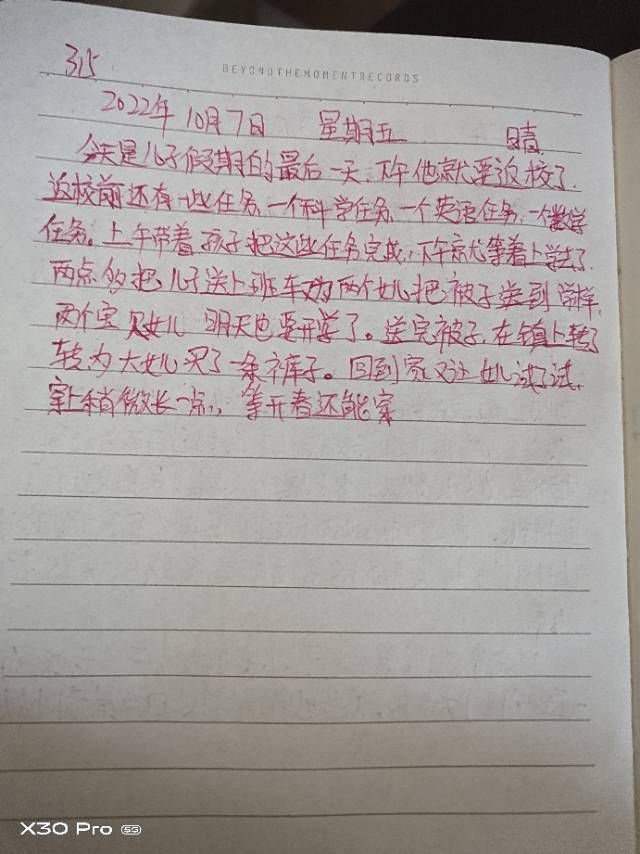 315
BEYONDTHEMOMENTRECORDS
2022年10月7日 星期五 晴
今天是儿子假期的最后一天,下午他就要返校了.
返校前还有一些任务,一个科学任务,一个英语任务,一个数学
任务。上午带着孩子把这些任务完成,下午就等着上学去了.
两点多把儿子送上班车 为两个女儿把被子送到学样,
两个宝贝女儿 明天也要开学了。送完被子,在镇上转了
转为大女儿买了一条裤子。回到家又让女儿试了试,
穿上稍微长一点,,等开春还能穿
X30 Pro 5G